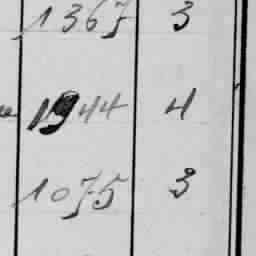 1367 3
1944 4
1075 3